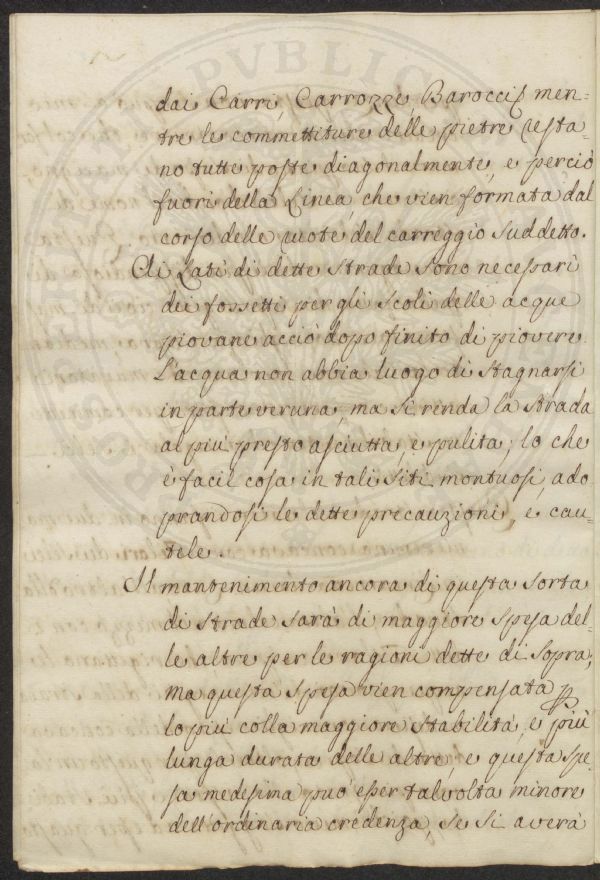 dai Carri, Carrozze, Barocci men-
tre le commettiture delle pietre resta
no tutte poste diagonalmente, e perciò
fuori della Linea, che vien formata dal
corso delle ruote del carreggio suddetto.
Ai Lati di dette strade sono necessari
dei fossetti per gli scoli delle acque
piovane acciò dopo finito di piovere
L'acqua non abbia luogo di stagnarsi
in parte veruna, ma si renda la strada
al più presto asciutta, e pulita, lo che
è facil cosa in tali siti montuosi, ado
prandosi le dette precauzioni, e cau-
tele.
Il mantenimento ancora di questa sorta
di strade sarà di maggiore spesa del-
le altre per le ragioni dette di sopra,
ma questa spesa vien compensata p
lo più colla maggiore stabilità, e più
lunga durata delle altre, e questa spe-
sa medesima può esser talvolta minore
dell'ordinaria credenza, se si averà